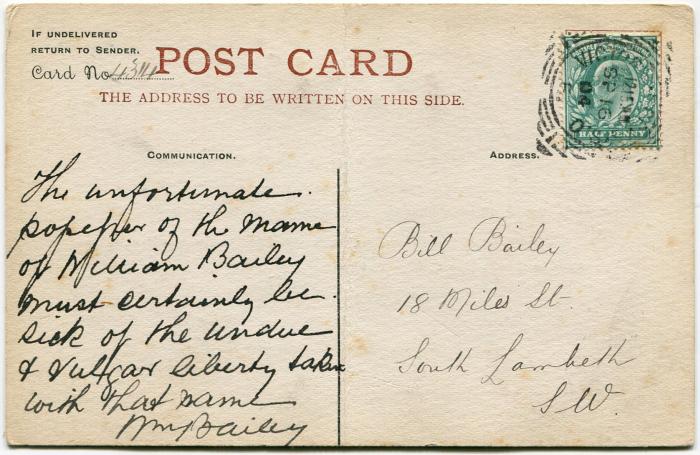 IF UNDELIVERED
RETURN TO SENDER.
Card No
POST CARD
THE ADDRESS TO BE WRITTEN ON THIS SIDE.
COMMUNICATION.
ADDRESS.
HALF PENNY
SP 16
04
The unfortunate
of the name
of William Bailey
must certainly be
sick of the undue
& vulgar liberty taken
with that name
Wm Bailey
Bill Bailey
18 Miles St.
South Lambeth
S.W.